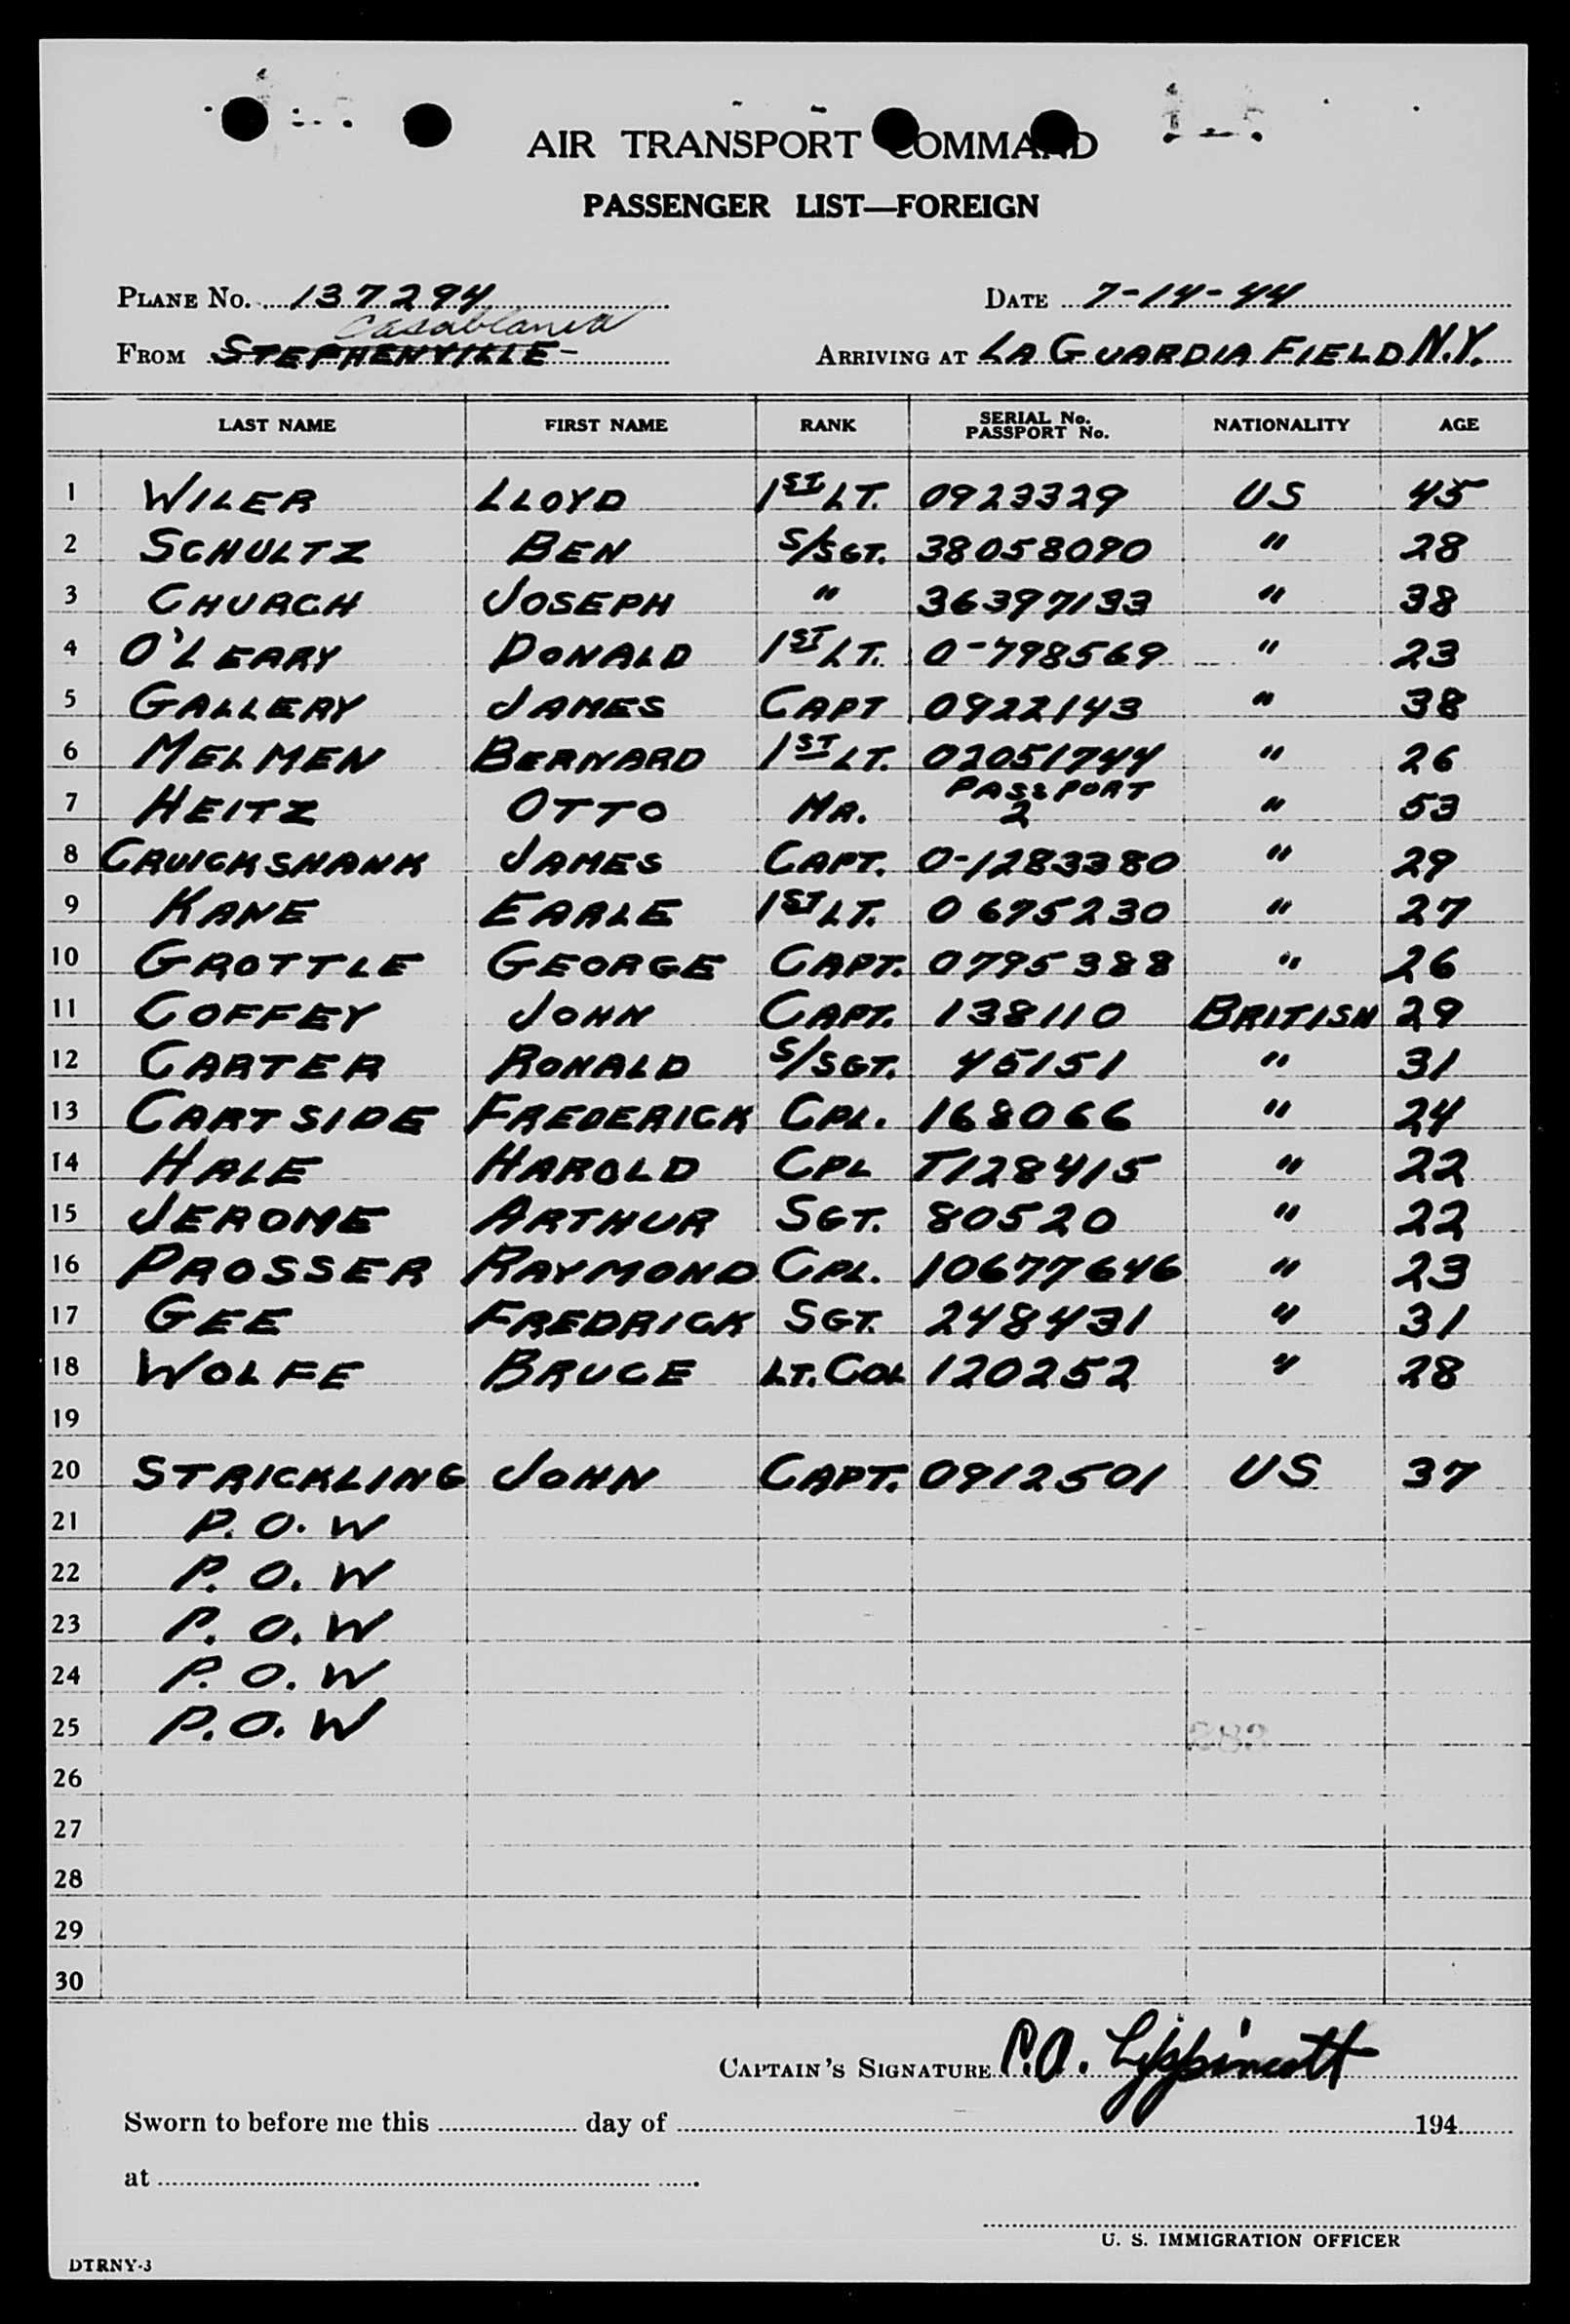 AIR TRANSPORT COMMAND
PASSENGER LIST—FOREIGN
PLANE No. 137294 DATE 7-14-44
Casablanca
FROM STEPHENVILLE- ARRIVING AT LA GUARDIA FIELD N.Y.
LAST NAME FIRST NAME RANK SERIAL No. PASSPORT No. NATIONALITY AGE
1 WILER LLOYD 1ST LT. 0923329 US 45
2 SCHULTZ BEN S/SGT. 38058090 " 28
3 CHURCH JOSEPH " 36397133 " 38
4 O'LEARY DONALD 1ST LT. O-798569 " 23
5 GALLERY JAMES CAPT 0922143 " 38
6 MELMEN BERNARD 1ST LT. 02051744 " 26
7 HEITZ OTTO MR. PASSPORT 2 " 53
8 CRUICKSHANK JAMES CAPT. O-1283380 " 29
9 KANE EARLE 1ST LT. 0695230 " 27
10 GROTTLE GEORGE CAPT. 0795388 " 26
11 COFFEY JOHN CAPT. 138110 BRITISH 29
12 CARTER RONALD S/SGT. 45151 " 31
13 CARTSIDE FREDERICK CPL. 168066 " 24
14 HALE HAROLD CPL T128415 " 22
15 JEROME ARTHUR SGT. 80520 " 22
16 PROSSER RAYMOND CPL. 10677646 " 23
17 GEE FREDRICK SGT. 248431 " 31
18 WOLFE BRUCE LT. COL 120252 " 28
19
20 STRICKLING JOHN CAPT. 0912501 US 37
21 P.O.W
22 P.O.W
23 P.O.W
24 P.O.W
25 P.O.W
26
27
28
29
30
CAPTAIN'S SIGNATURE P.A. Lippincott
Sworn to before me this day of 194
at .
U. S. IMMIGRATION OFFICER
DTRNY-3